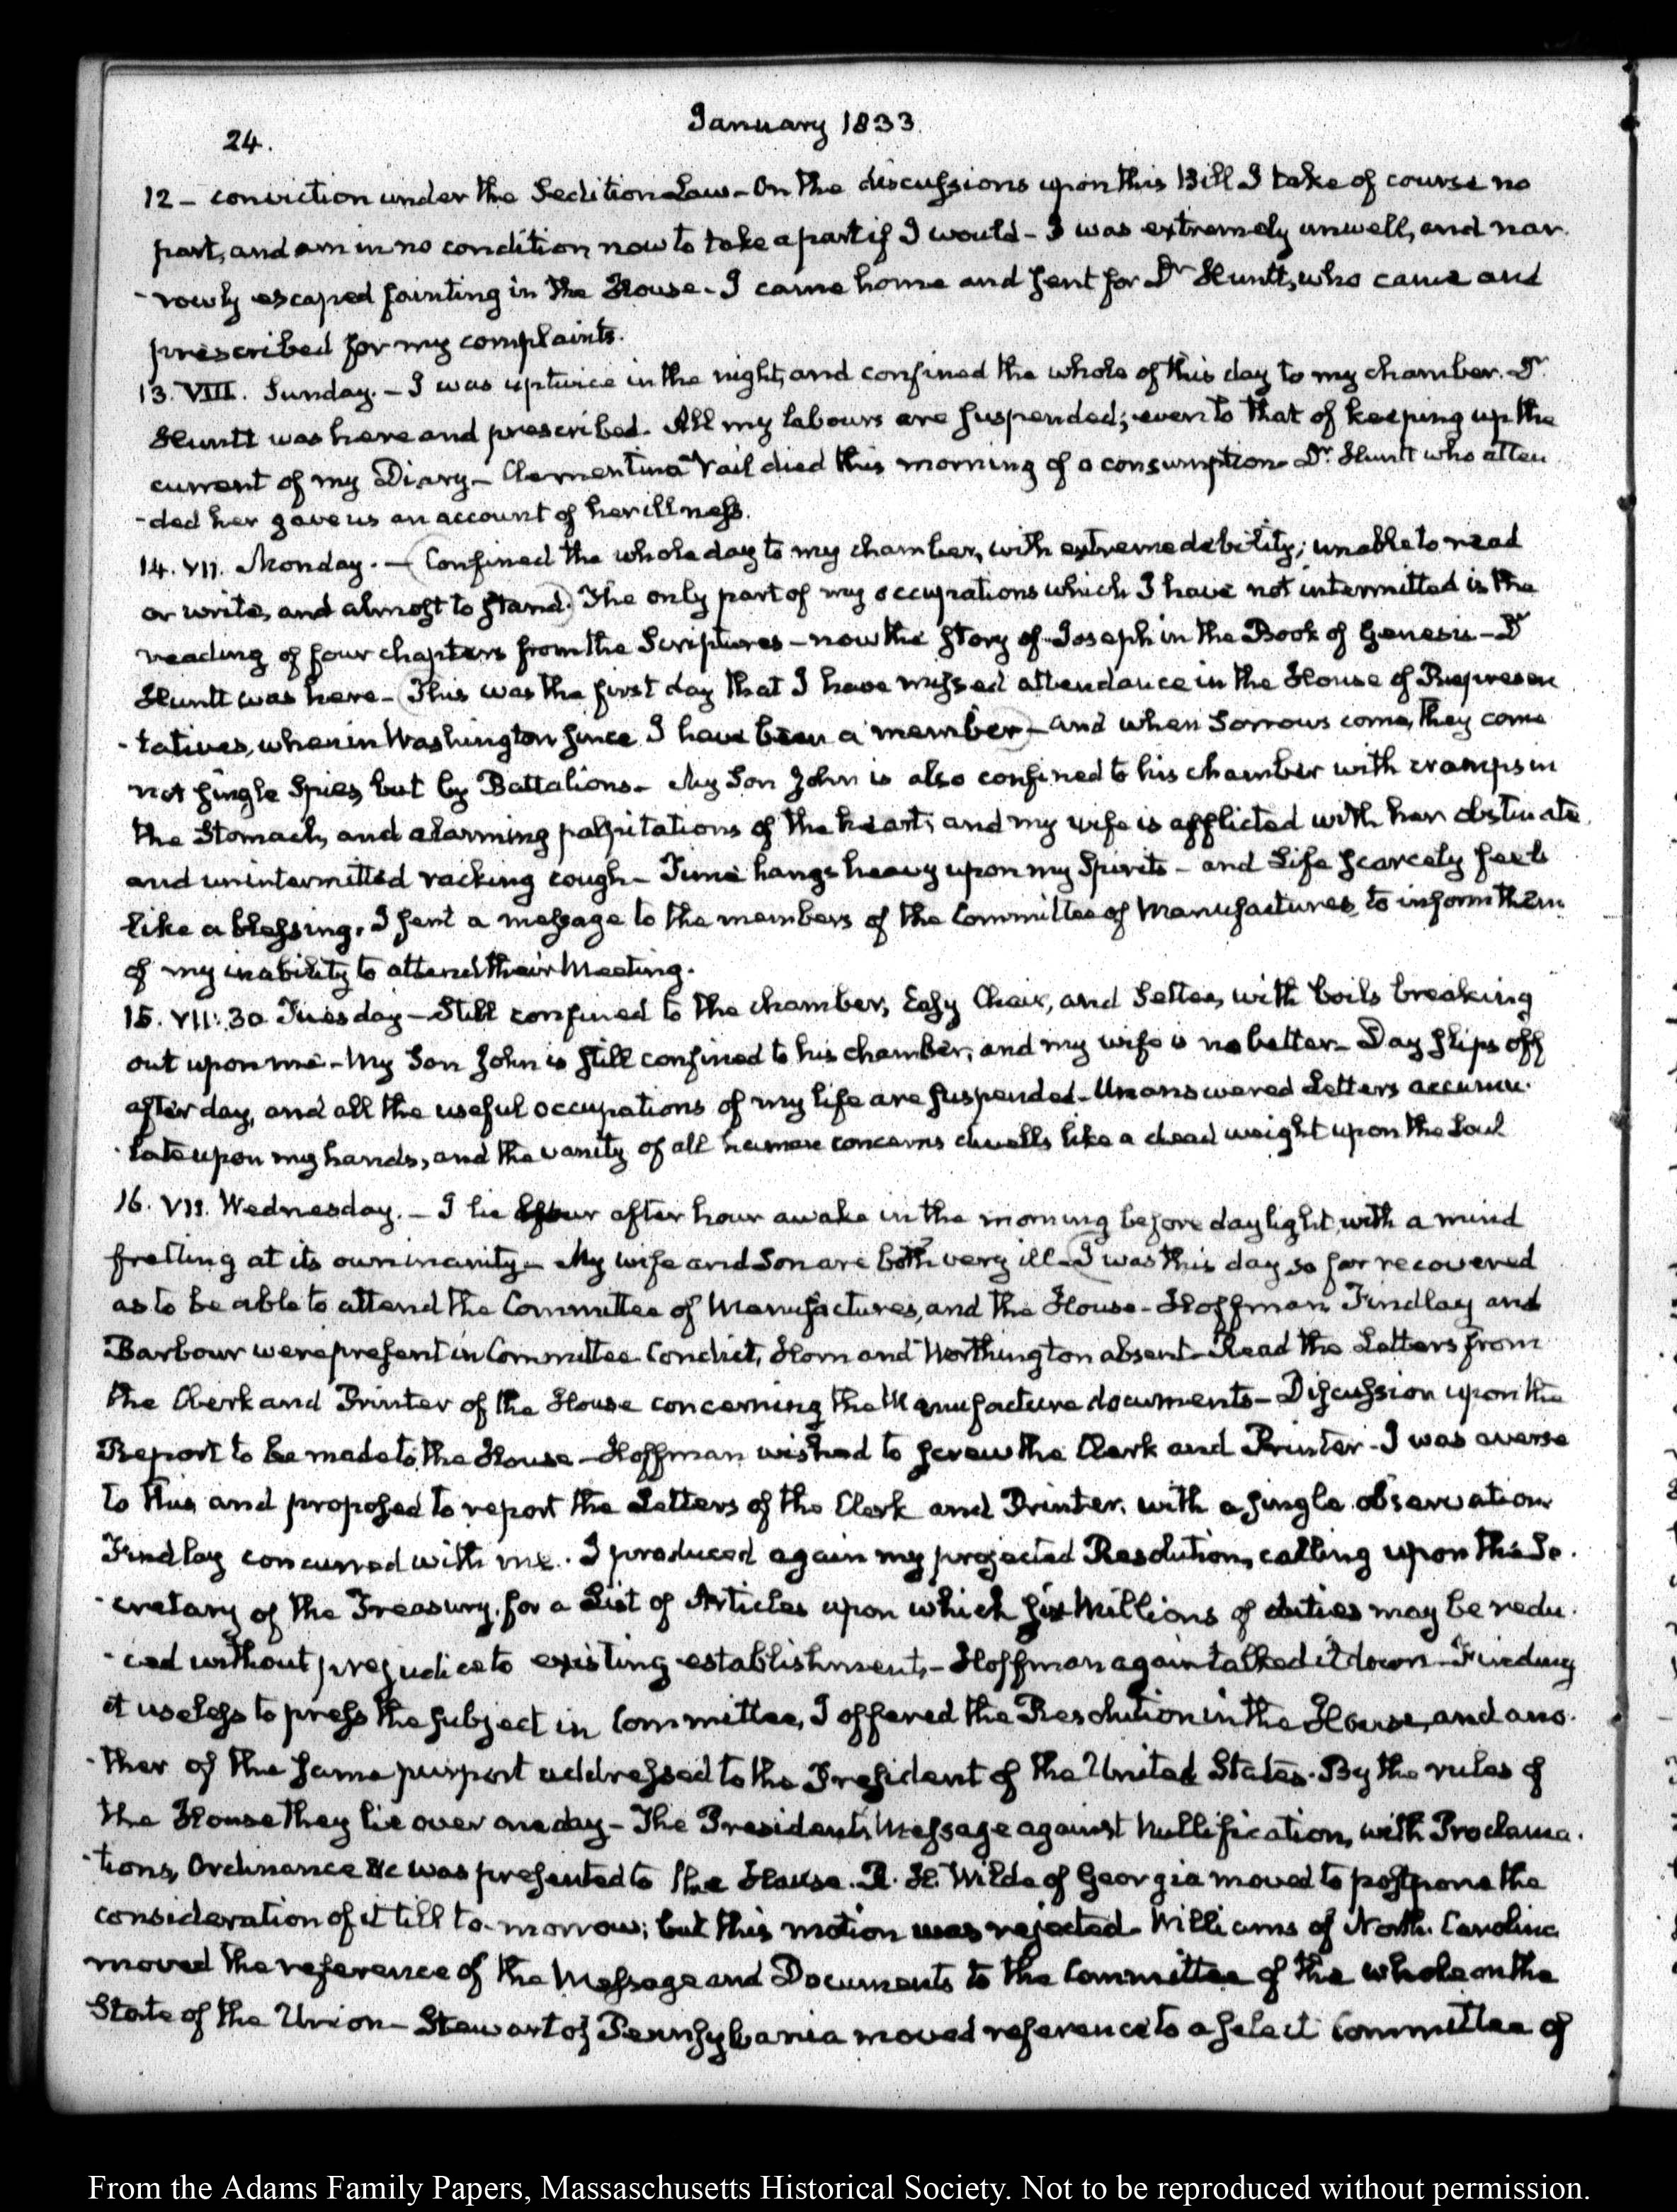 24.
January 1833.
12 – conviction under the Sedition Law – On the discussions upon this Bill I take of course no
part, and am in no condition now to take a part if I would – I was extremely unwell, and nar-
-rowly escaped fainting in the House – I came home and sent for Dr Huntt, who came and
prescribed for my complaints.
13. VIII. Sunday. – I was up twice in the night, and confined the whole of this day to my chamber. Dr
Huntt was here and prescribed. All my labours are suspended; even to that of keeping up the
current of my Diary – Clementina Vail died this morning of a consumption – Dr. Huntt who atten
-ded her gave us an account of her illness.
14. VII. Monday. – (Confined the whole day to my chamber, with extreme debility; unable to read
or write, and almost to stand.) The only part of my occupations which I have not intermitted is the
reading of four chapters from the Scriptures – now the story of Joseph in the Book of Genesis – Dr
Huntt was here – (This was the first day that I have missed attendance in the House of Represen
-tatives, when in Washington since I have been a member) – and when Sorrows come, they come
not single Spies, but by Battalions – My Son John is also confined to his chamber with cramps in
the Stomach, and alarming palpitations of the heart; and my wife is afflicted with her obstinate
and unintermitted racking cough – Time hangs heavy upon my Spirits – and Life scarcely feels
like a blessing. I sent a message to the members of the Committee of Manufactures, to inform them
of my inability to attend their Meeting.
15. VII:30 Tuesday – Still confined to the chamber, Easy Chair, and Settee, with boils breaking
out upon me – My Son John is still confined to his chamber, and my wife is no better – Day slips off
after day, and all the useful occupations of my life are suspended – Unanswered Letters accumu-
-late upon my hands, and the vanity of all human concerns dwells like a dead weight upon the Soul
16. VII. Wednesday. – I lie hour after hour awake in the morning before daylight, with a mind
fretting at its own inanity – My wife and Son are both very ill – (I was this day so far recovered
as to be able to attend the Committee of Manufactures, and the House – Hoffman, Findlay and
Barbour were present in Committee. Condict, Horn and Worthington absent – Read the Letters from
the Clerk and Printer of the House concerning the Manufacture documents – Discussion upon the
Report to be made to the House – Hoffman wished to screw the Clerk and Printer – I was averse
to this, and proposed to report the Letters of the Clerk and Printer, with a single observation
Findlay concurred with me. I produced again my projected Resolution, calling upon the Se-
-cretary of the Treasury, for a List of Articles upon which six Millions of duties may be redu-
-ced without prejudice to existing establishments – Hoffman again talked it down – Finding
it useless to press the subject in Committee, I offered the Resolution in the House, and ano-
-ther of the same purport addressed to the President of the United States. By the rules of
the House they lie over one day – The President's Message against Nullification, with Proclama-
-tions, Ordinance &c was presented to the House. R. H. Wilde of Georgia moved to postpone the
consideration of it till to-morrow; but this motion was rejected – Williams of North Carolina
moved the reference of the Message and Documents to the Committee of the whole on the
State of the Union – Stewart of Pennsylvania moved reference to a select Committee of
From the Adams Family Papers, Massachusetts Historical Society. Not to be reproduced without permission.